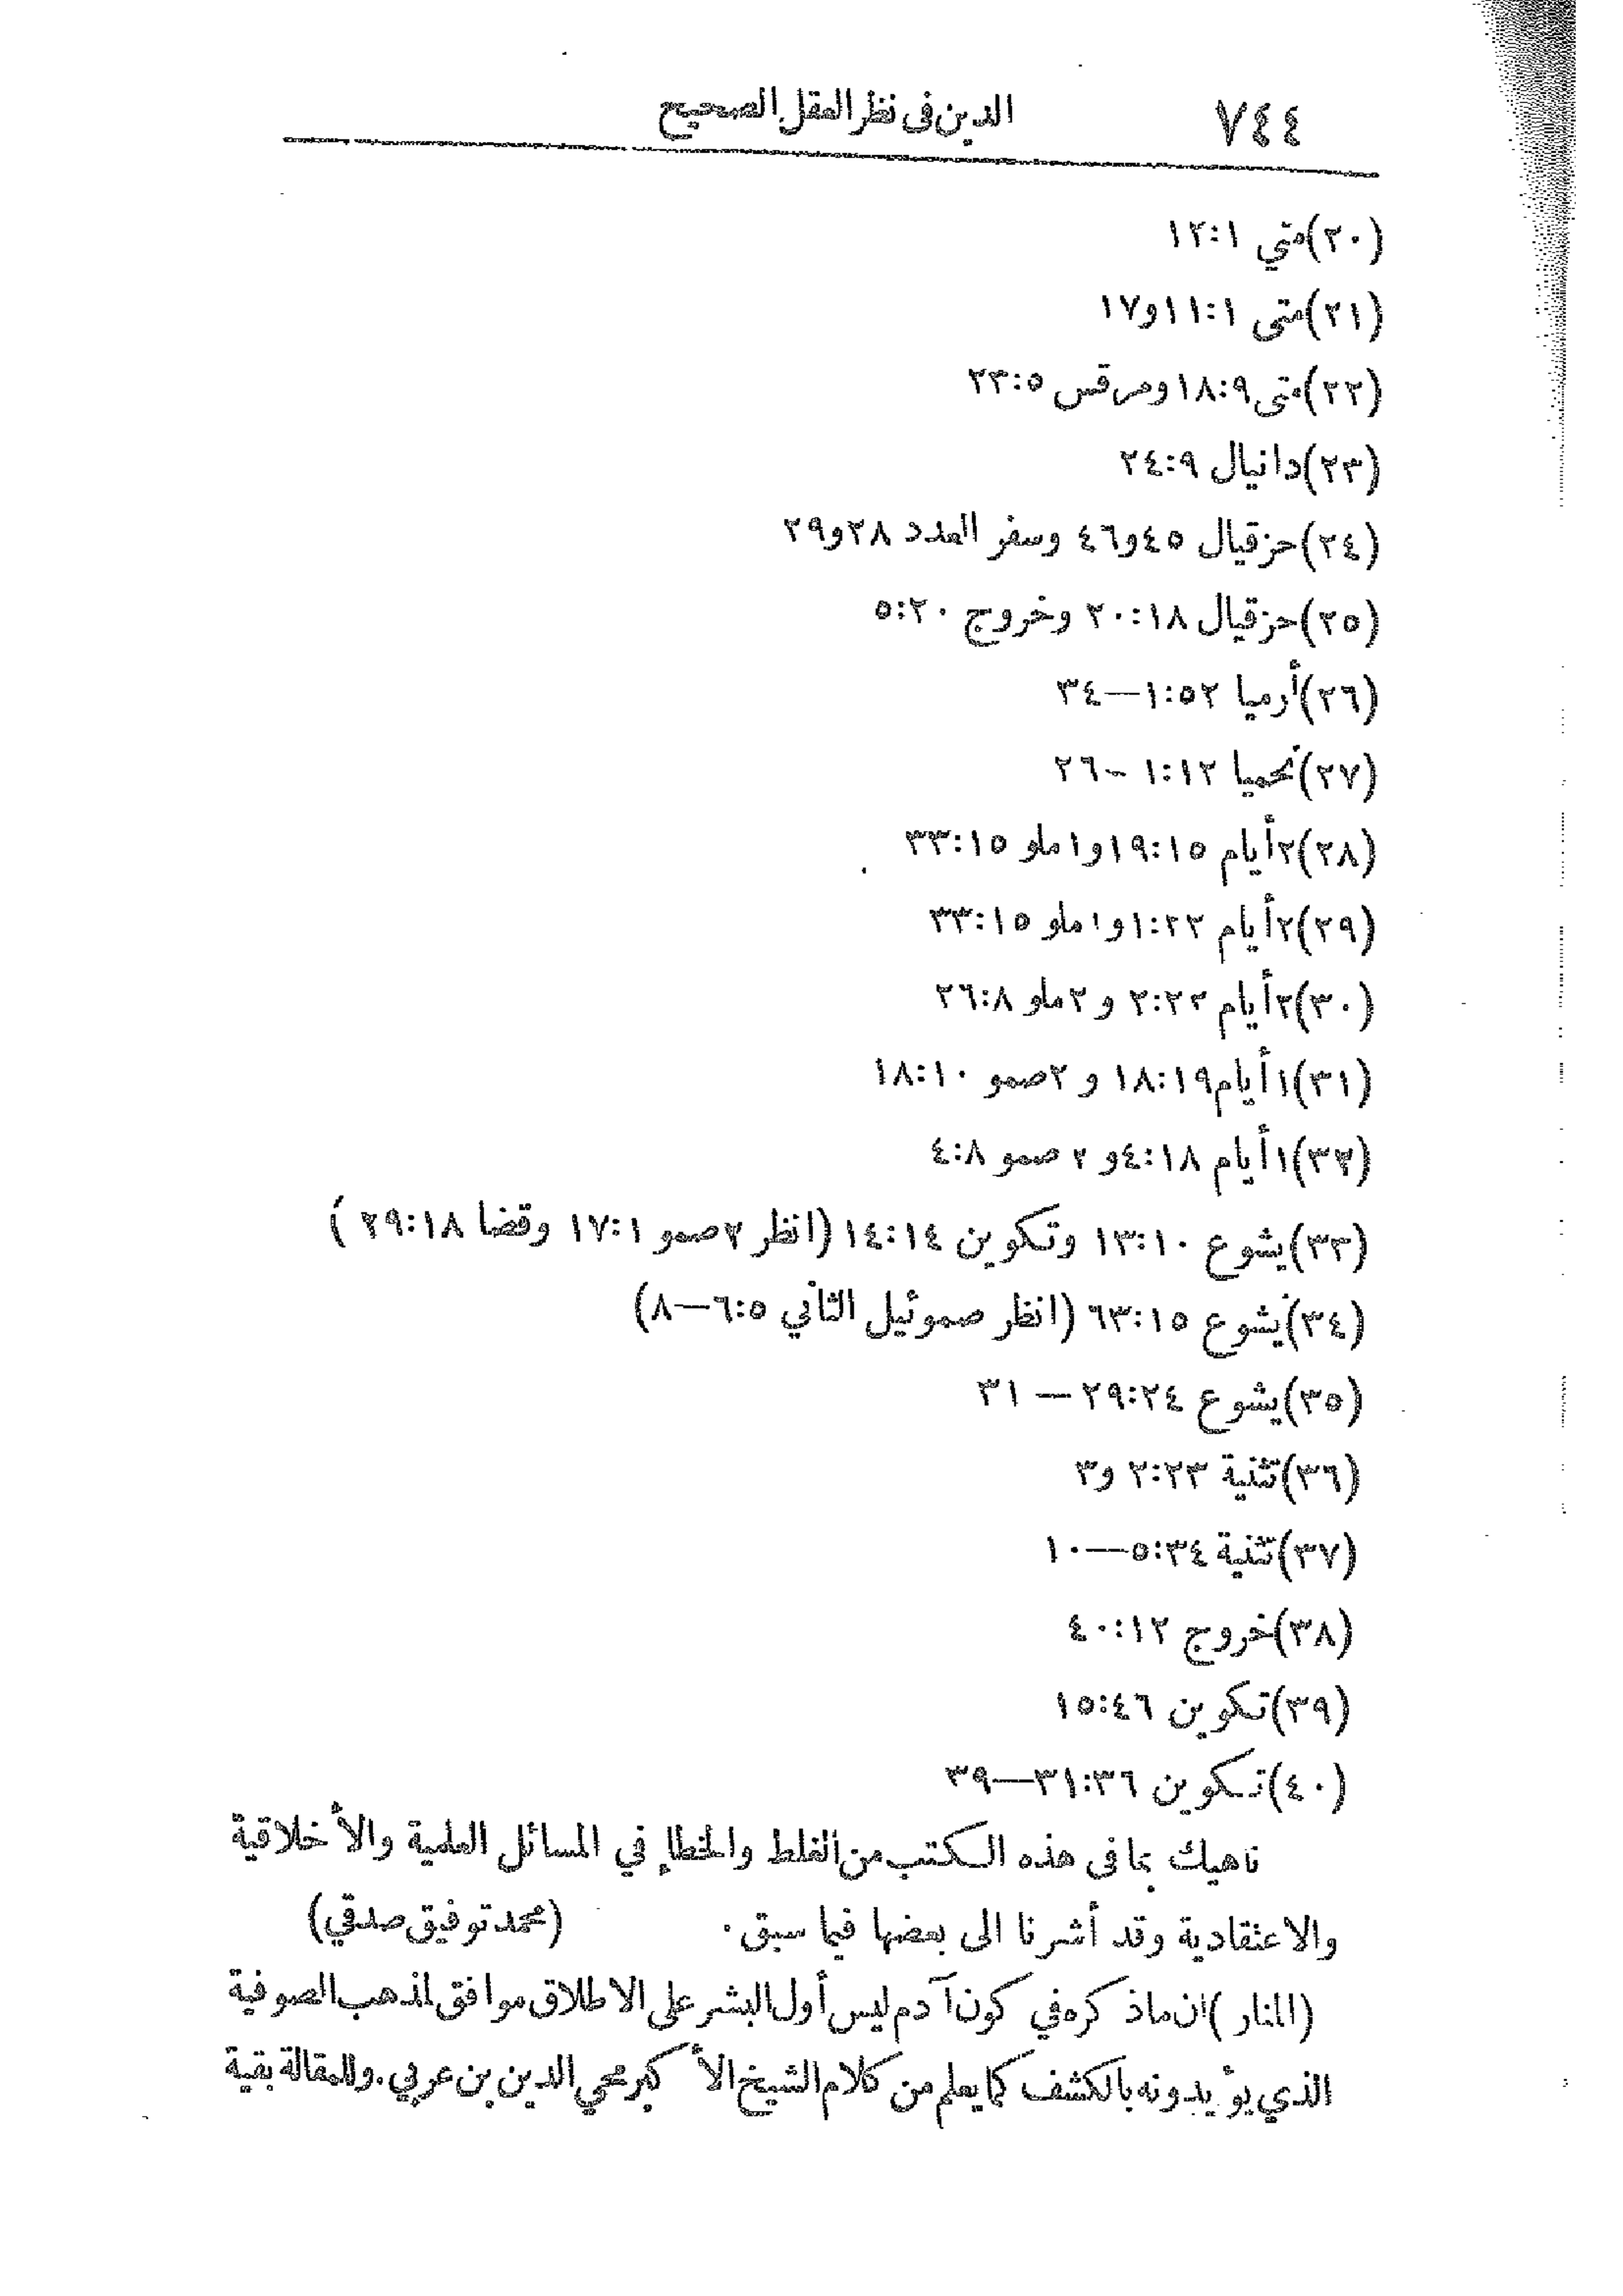 ٧٤٤ الدين في نظر العقل الصحيح
(٢٠)متي ١٢:١
(٢١)متى ١١:١و١٧
(٢٢)متى١٨:٩ومرقس ٢٣:٥
(٢٣)دانيال ٢٤:٩
(٢٤)حزقيال ٤٥و٤٦ وسفر العدد ٢٨و٢٩
(٢٥)حزقيال ٢٠:١٨ وخروج ٥:٢٠
(٢٦)أرميا ١:٥٢—٣٤
(٢٧)نحميا ١:١٢ -٢٦
(٢٨)٢أيام ١٩:١٥و١ملو ٣٣:١٥
(٢٩)٢أيام ١:٢٢و١ملو ٣٣:١٥
(٣٠)٢أيام ٢:٢٢ و٢ملو ٢٦:٨
(٣١)١أيام١٨:١٩ و ٢صمو ١٨:١٠
(٣٢)١أيام ٤:١٨و ٢ صمو ٤:٨
(٣٣)يشوع ١٣:١٠ وتكوين ١٤:١٤ (انظر ٢صمو ١٧:١ وقضا ٢٩:١٨ )
(٣٤)يشوع ٦٣:١٥ (انظر صموئيل الثاني ٦:٥—٨)
(٣٥)يشوع ٢٩:٢٤ — ٣١
(٣٦)تثنية ٢:٢٣ و٣
(٣٧)تثنية ٥:٣٤—١٠
(٣٨)خروج ٤٠:١٢
(٣٩)تكوين ١٥:٤٦
(٤٠)تكوين ٣١:٣٦—٣٩
ناهيك بما في هذه الكتب من الغلط والخطإ في المسائل العلمية والأخلاقية
والاعتقادية وقد أشرنا الى بعضها فيما سبق. (محمد توفيق صدقي)
(المنار) ان ماذكره في كون آدم ليس أول البشر على الاطلاق موافق لمذهب الصوفية
الذي يؤيدونه بالكشف كما يعلم من كلام الشيخ الأكبر محي الدين بن عربي. وللمقالة بقية